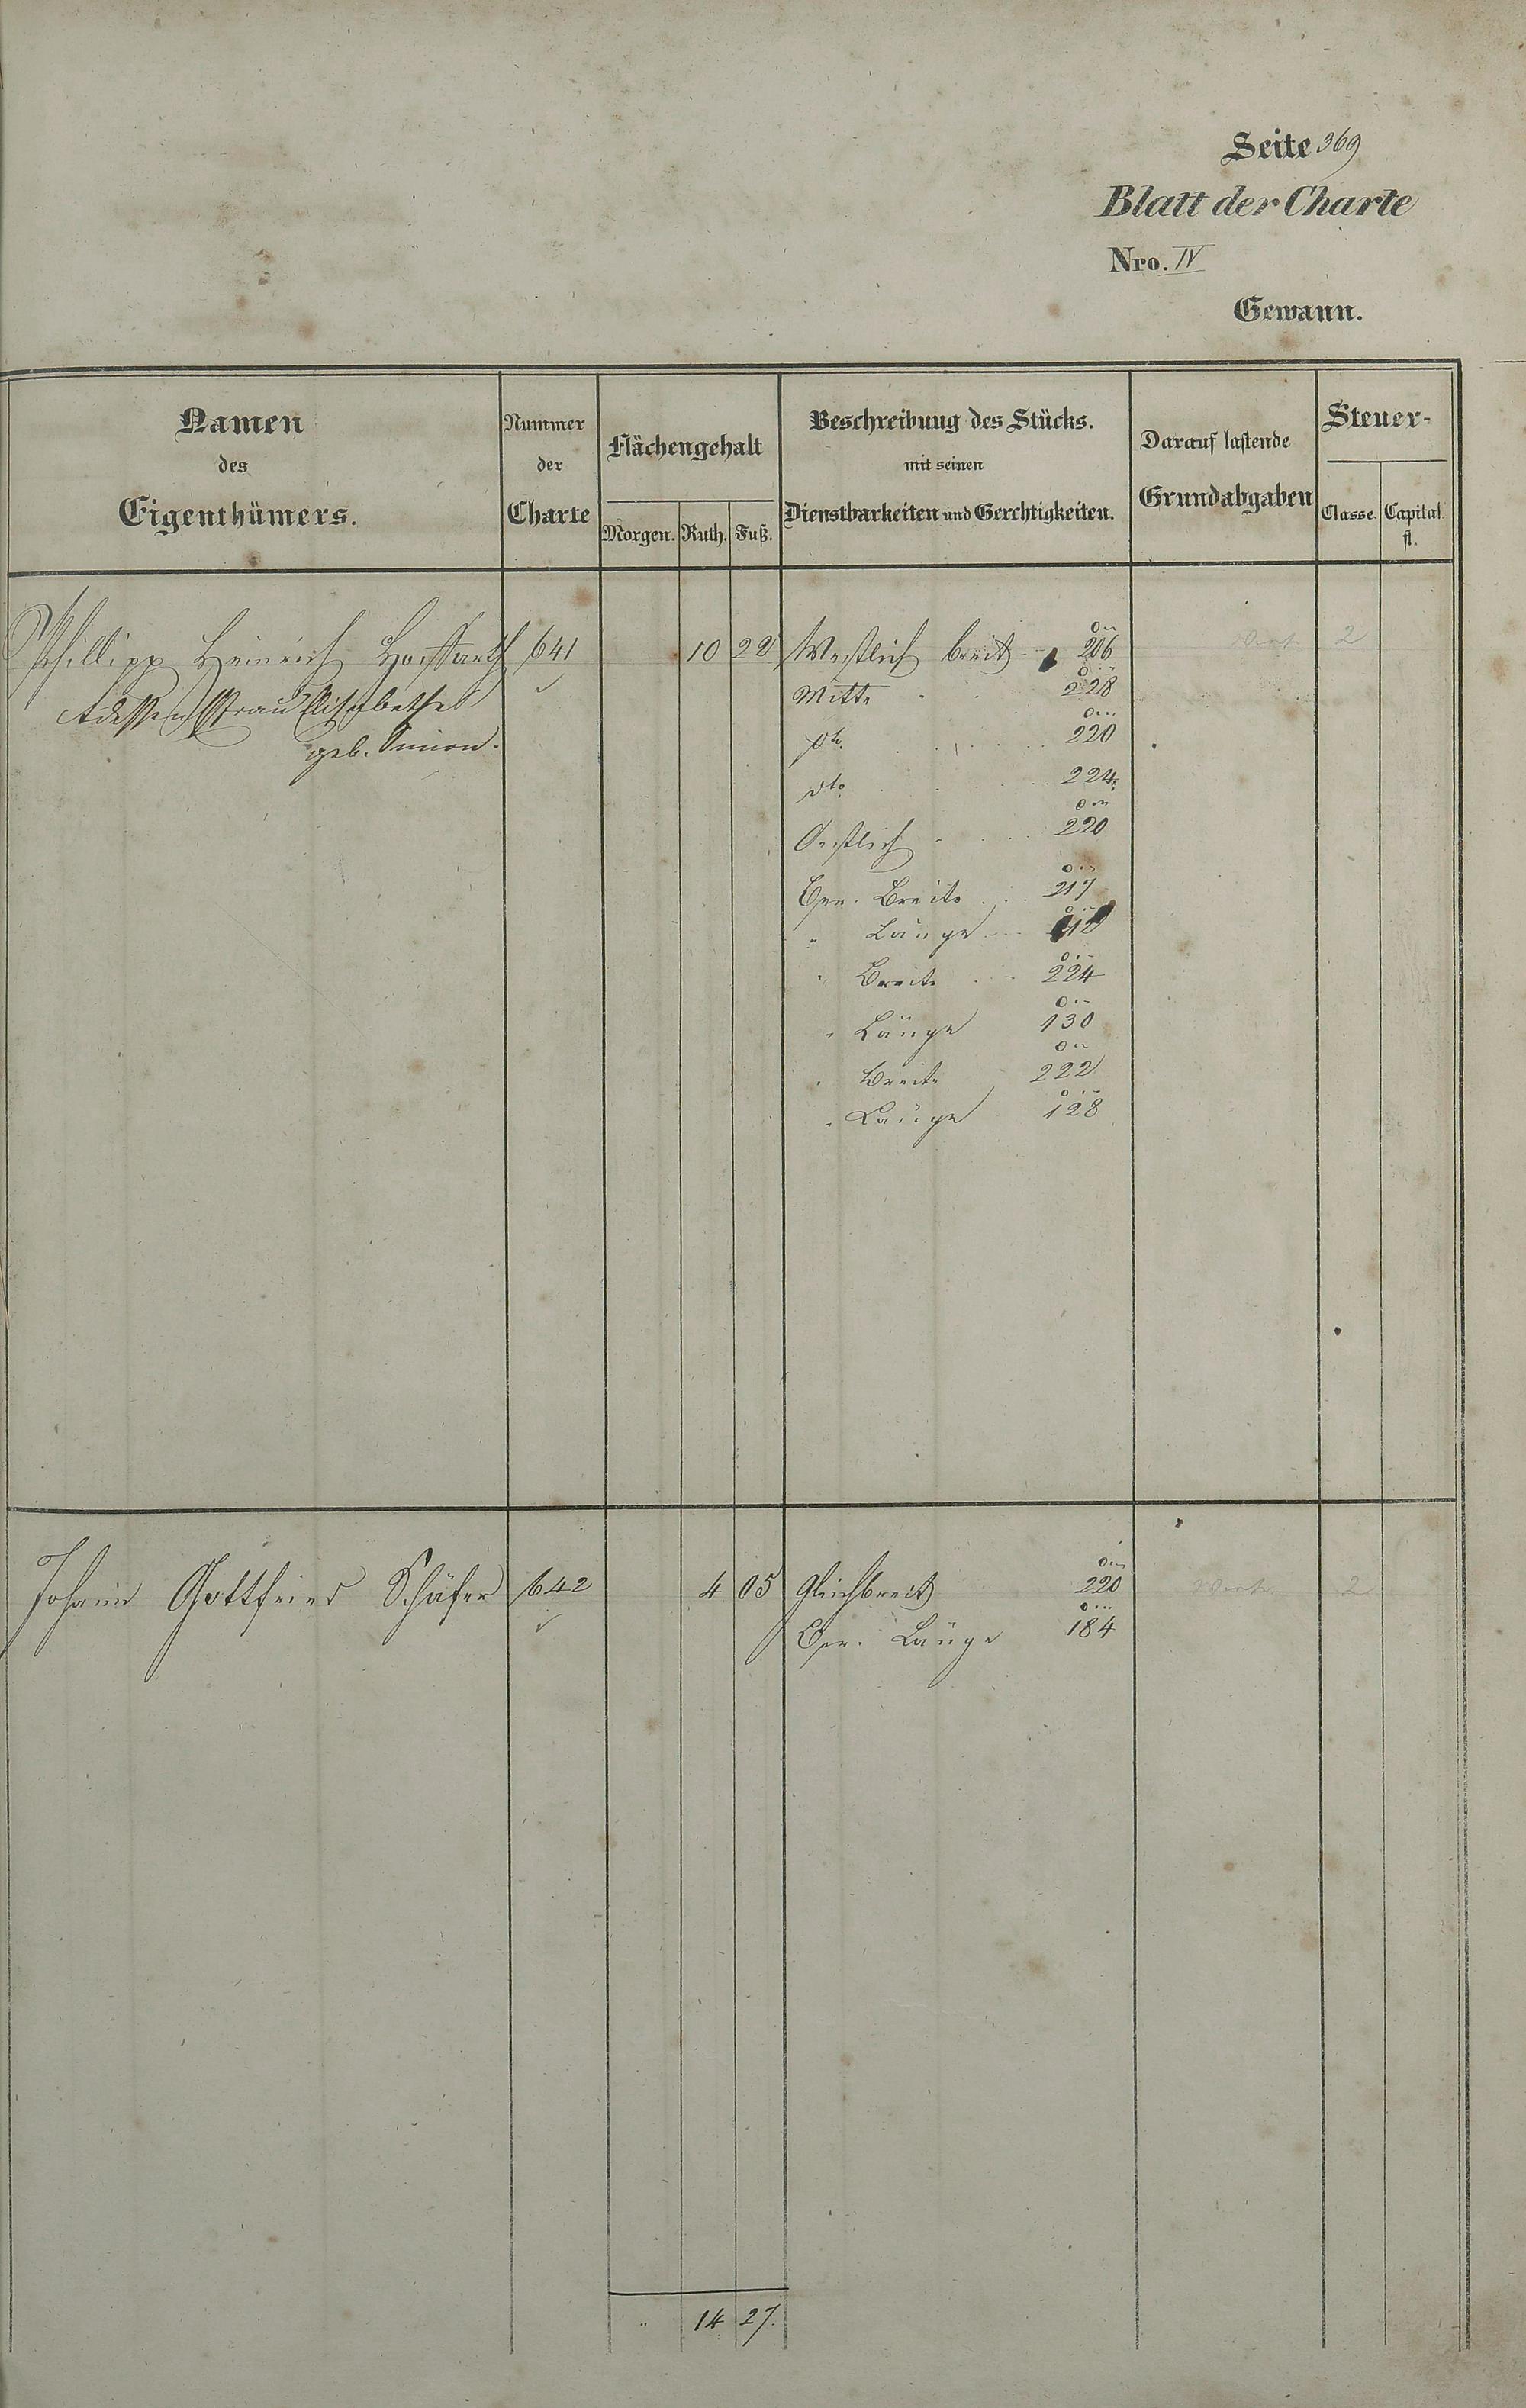 Seite 369
Blatt der Charte
Nro. IV
Gewann.
Namen
des
Eigenthümers.
Nummer
der
Charte
Flächengehalt
Morgen. Ruth. Fuß.
Beschreibung des Stücks.
mit seinen
Dienstbarkeiten und Gerchtigkeiten.
Darauf lastende
Grundabgaben
Steuer-
Classe. Capital
fl.
Phillipp Heinrich 641 10 22 Westlich breit 206 2
Frau Elisabetha Mitte 228
geb. Simon. dto. 220
dto 224
Oestlich 220
Ger. Breite 217
" Länge
" Breite 224
" Länge 130
" Breite 222
" Länge 128
Johann Gottfried Schäfer 642 4 05 Gleichbreit 220 2
Ger. Länge 184
" 14 27.